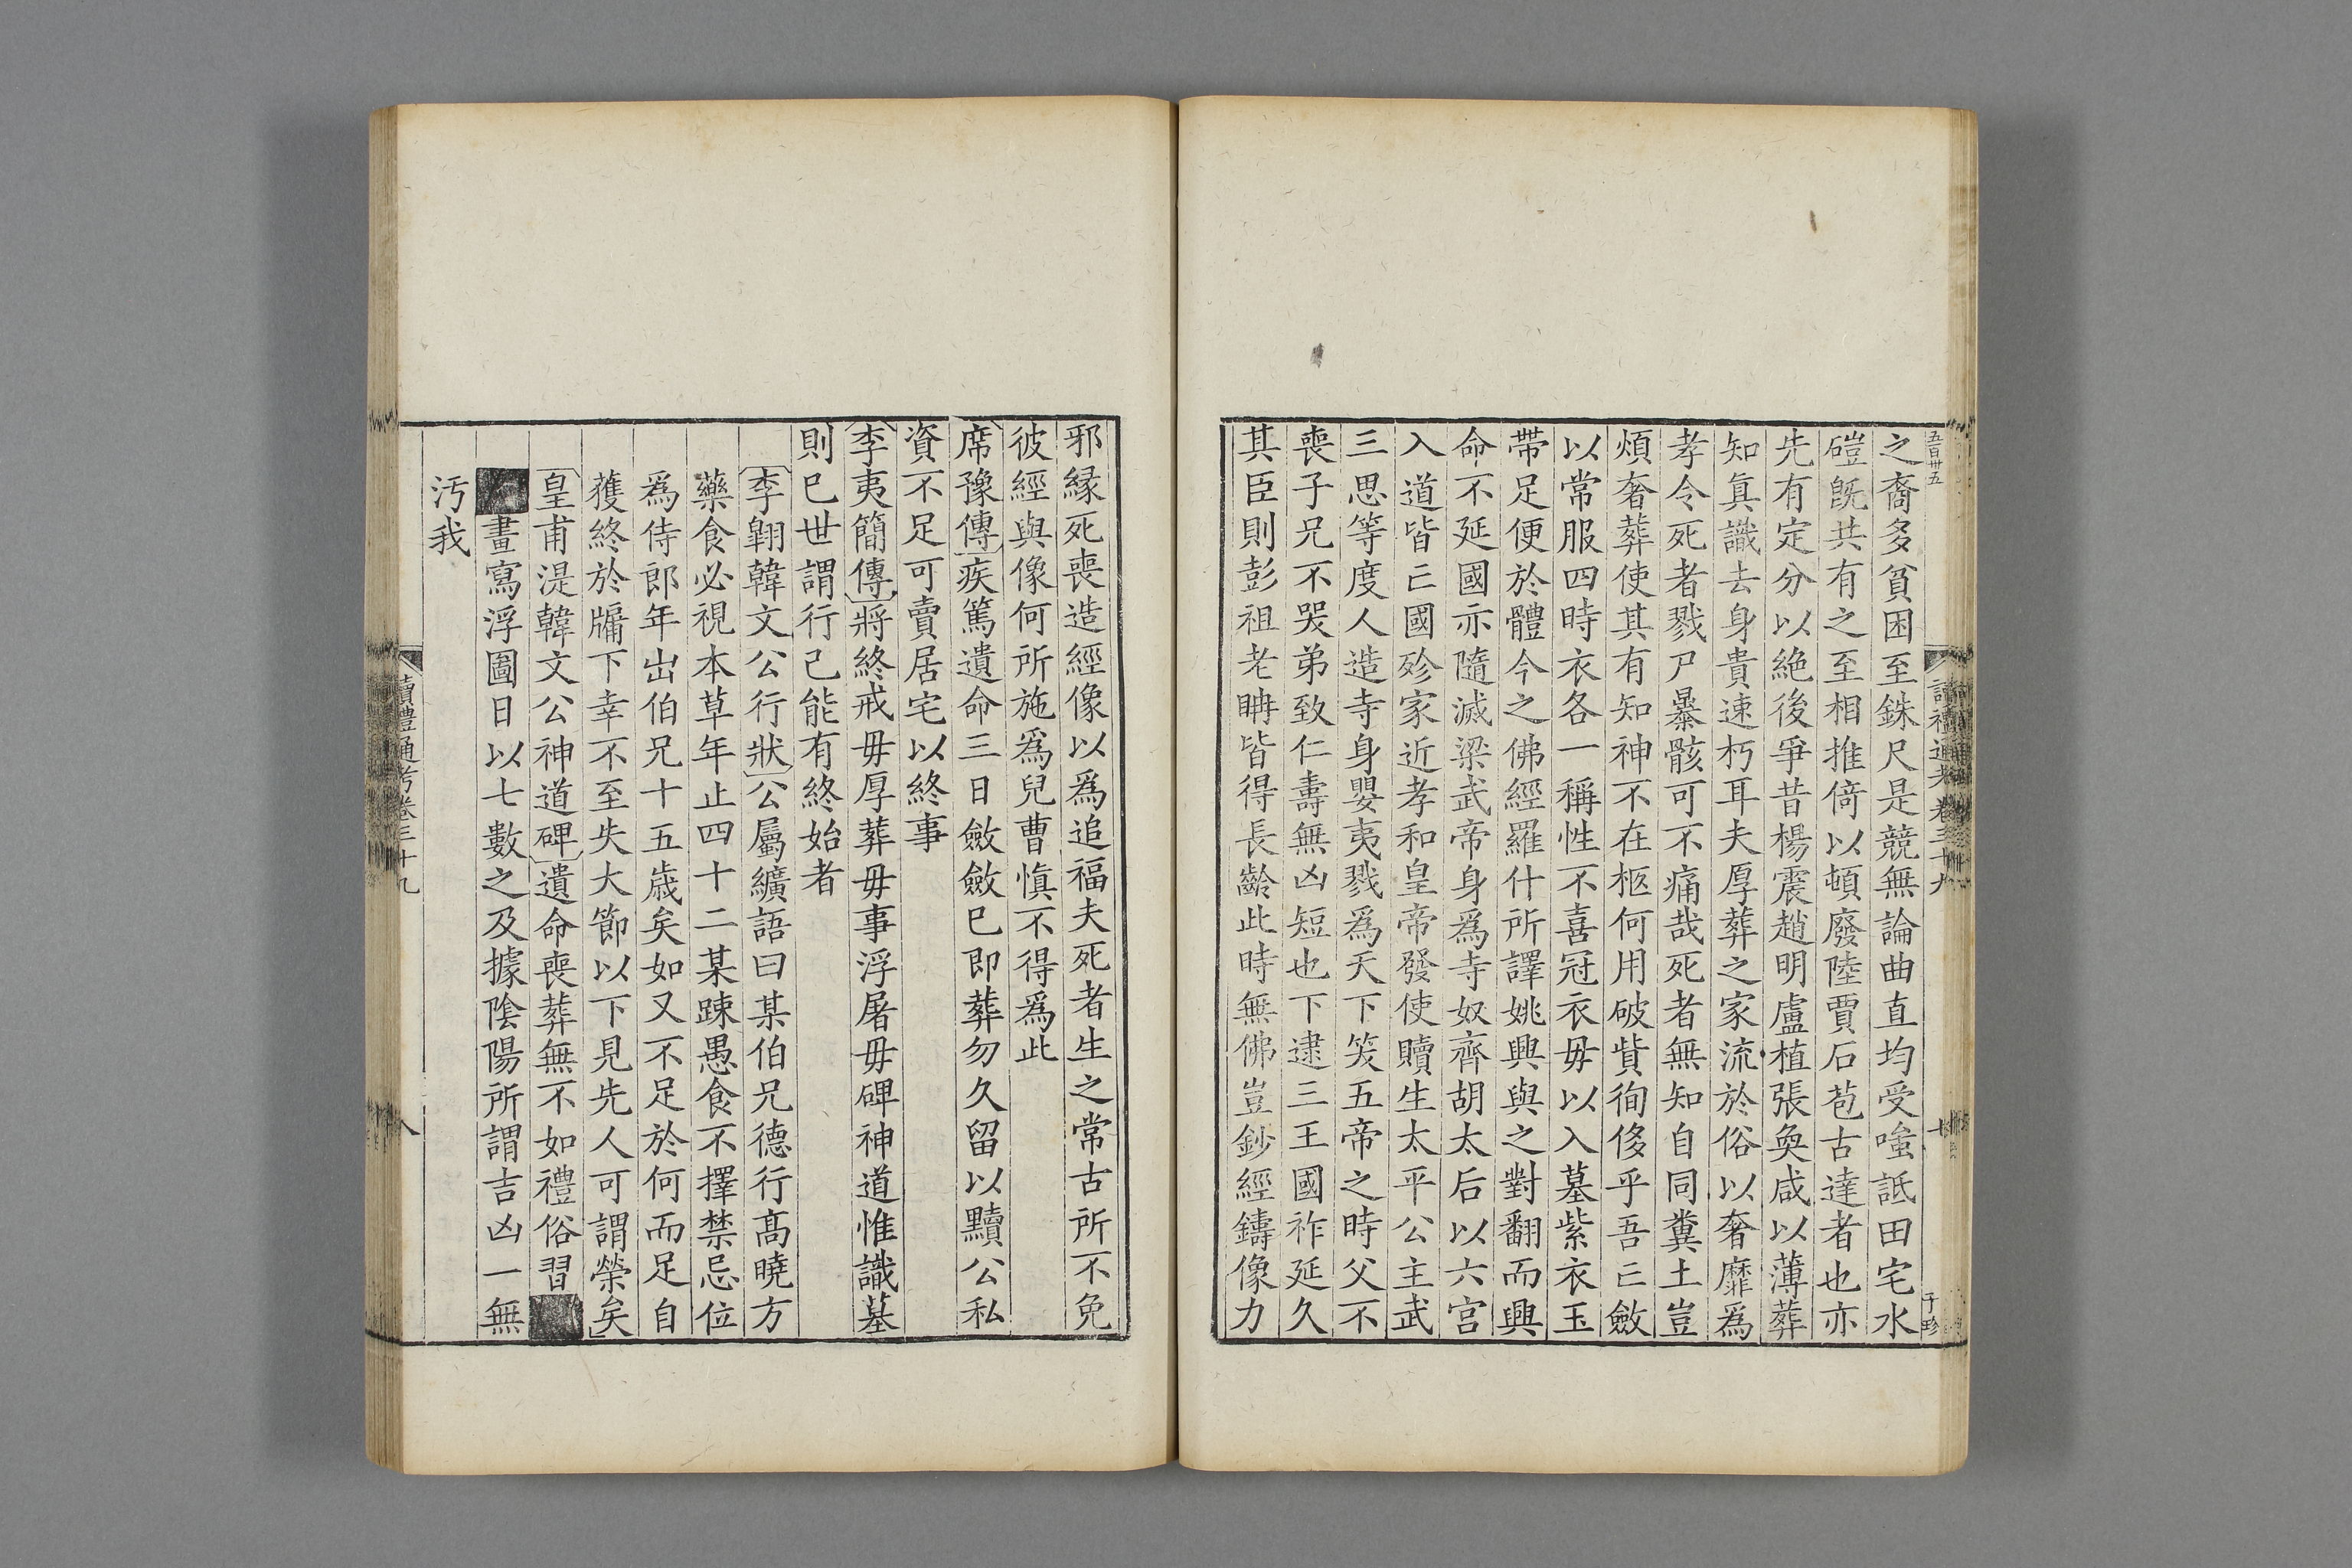 五百卅五
讀禮通考卷三十九
十
于珍
之裔多貧困至銖尺是競無論曲直均受嗤詆田宅水
磑旣共有之至相推倚以頓廢陸賈石苞古達者也亦
先有定分以絶後爭昔楊震趙明盧植張奐咸以薄葬
知眞識去身貴速朽耳夫厚葬之家流於俗以奢靡爲
孝令死者戮尸暴骸可不痛哉死者無知自同糞土豈
煩奢葬使其有知神不在柩何用破貲徇侈乎吾亡斂
以常服四時衣各一稱性不喜冠衣毋以入墓紫衣玉
帶足便於體今之佛經羅什所譯姚興與之對翻而興
命不延國亦隨滅梁武帝身爲寺奴齊胡太后以六宫
入道皆亡國殄家近孝和皇帝發使贖生太平公主武
三思等度人造寺身嬰夷戮爲天下笑五帝之時父不
喪子兄不哭弟致仁壽無凶短也下逮三王國祚延久
其臣則彭祖老聃皆得長齡此時無佛豈鈔經鑄像力
邪縁死喪造經像以爲追福夫死者生之常古所不免
彼經與像何所施爲兒曹愼不得爲此
席豫傳疾篤遺命三日斂斂已即葬勿久留以黷公私
資不足可賣居宅以終事
李夷簡傳將終戒毋厚葬毋事浮屠毋碑神道惟識墓
則已世謂行己能有終始者
李翺韓文公行狀公屬纊語曰某伯兄德行髙曉方
藥食必視本草年止四十二某踈愚食不擇禁忌位
爲侍郎年出伯兄十五歳矣如又不足於何而足自
獲終於牖下幸不至失大節以下見先人可謂榮矣
皇甫湜韓文公神道碑遺命喪葬無不如禮俗習
畫寫浮圖日以七數之及據陰陽所謂吉凶一無
汚我
讀禮通考卷三十九
八